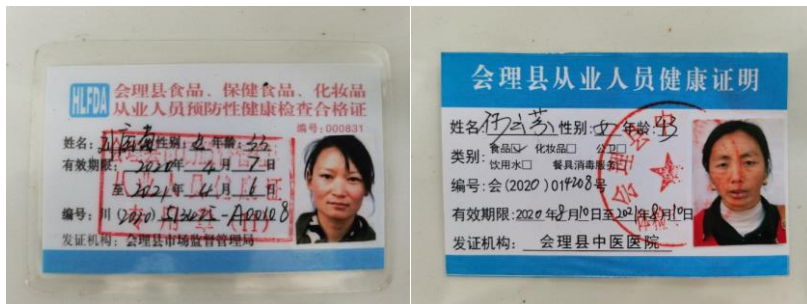 HLFDA
会理县食品、保健食品、化妆品
从业人员预防性健康检查合格证
编号:000831
姓名: 性别:女 年龄:33
有效期限: 2020年4月7日
至2021年4月6日
编号:川(2020)513425-A00108
发证机构: 会理县市场监督管理局
会理县从业人员健康证明
姓名: 性别:女 年龄:
类别: 食品☑ 化妆品□ 公卫□
饮用水□ 餐具消毒服务□
编号:会(2020)014208号
有效期限:2020年8月10日至2021年8月10日
发证机构: 会理县中医医院